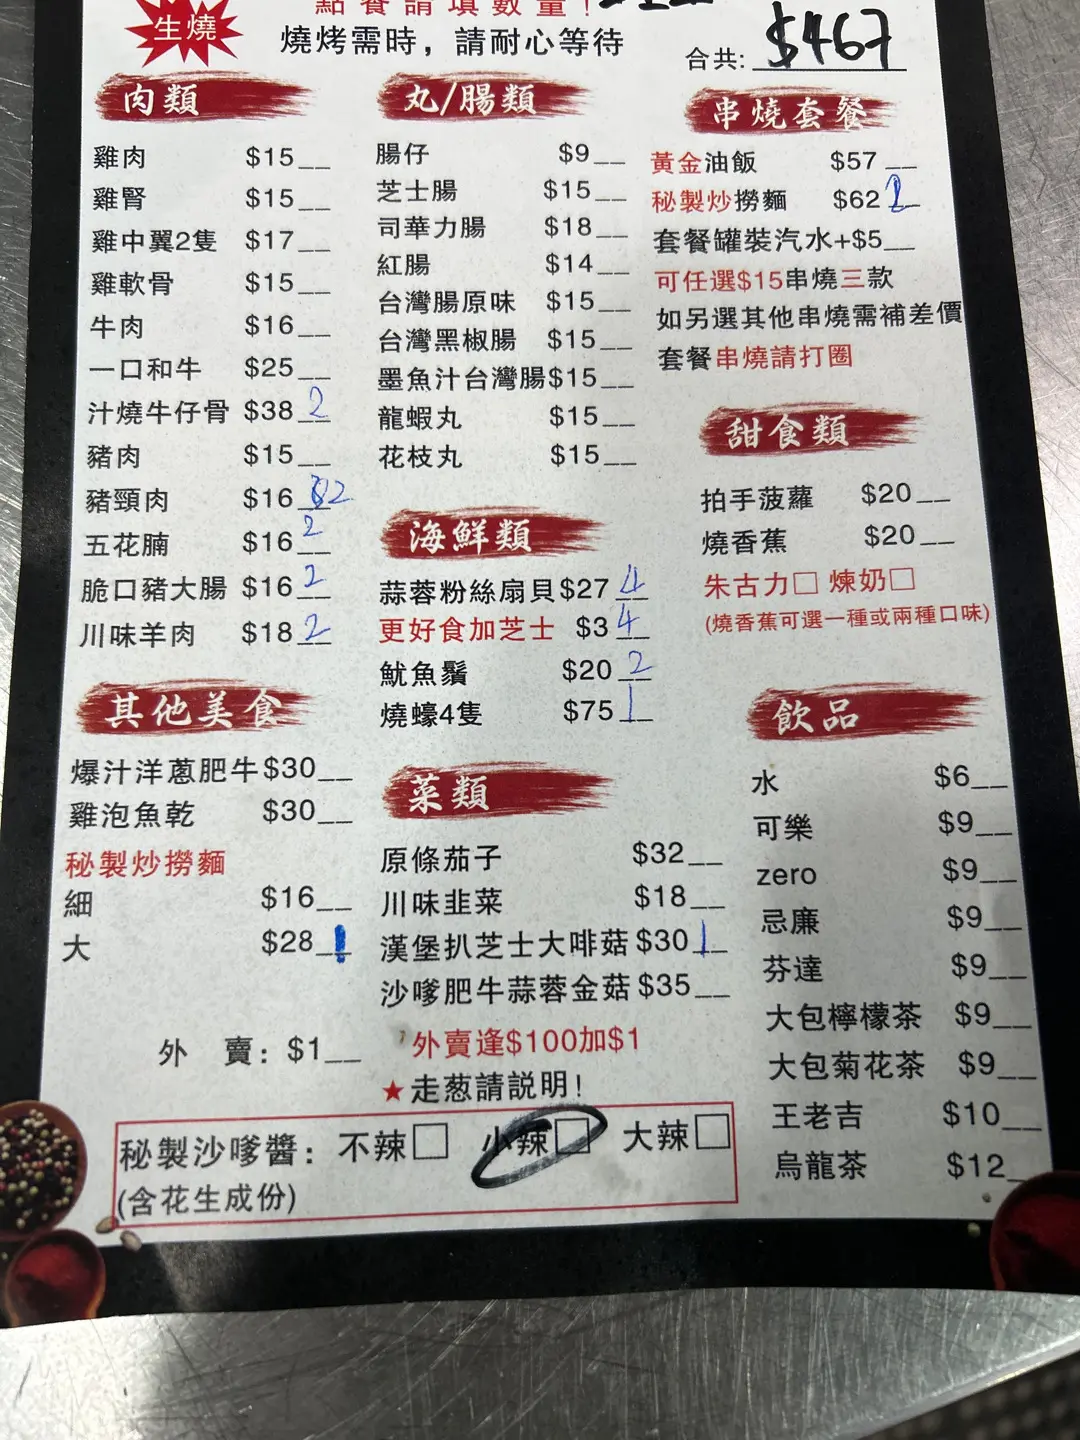 生燒
點餐請填數量！
燒烤需時，請耐心等待
合共: $467
肉類
雞肉 $15__
雞腎 $15__
雞中翼2隻 $17__
雞軟骨 $15__
牛肉 $16__
一口和牛 $25__
汁燒牛仔骨 $38 2
豬肉 $15__
豬頸肉 $16 2
五花腩 $16 2
脆口豬大腸 $16 2
川味羊肉 $18 2
其他美食
爆汁洋蔥肥牛 $30__
雞泡魚乾 $30__
秘製炒撈麵
細 $16__
大 $28__
外 賣: $1__
丸/腸類
腸仔 $9__
芝士腸 $15__
司華力腸 $18__
紅腸 $14__
台灣腸原味 $15__
台灣黑椒腸 $15__
墨魚汁台灣腸 $15__
龍蝦丸 $15__
花枝丸 $15__
海鮮類
蒜蓉粉絲扇貝 $27 4
更好食加芝士 $3 4
魷魚鬚 $20 2
燒蠔4隻 $75 1
菜類
原條茄子 $32__
川味韭菜 $18__
漢堡扒芝士大啡菇 $30 1
沙嗲肥牛蒜蓉金菇 $35__
外賣逢$100加$1
★走葱請説明！
串燒套餐
黃金油飯 $57__
秘製炒撈麵 $62
套餐罐裝汽水+$5__
可任選$15串燒三款
如另選其他串燒需補差價
套餐串燒請打圈
甜食類
拍手菠蘿 $20__
燒香蕉 $20__
朱古力□ 煉奶□
(燒香蕉可選一種或兩種口味)
飲品
水 $6__
可樂 $9__
zero $9__
忌廉 $9__
芬達 $9__
大包檸檬茶 $9__
大包菊花茶 $9__
王老吉 $10__
烏龍茶 $12_
秘製沙嗲醬: 不辣□ 小辣□ 大辣□
(含花生成份)